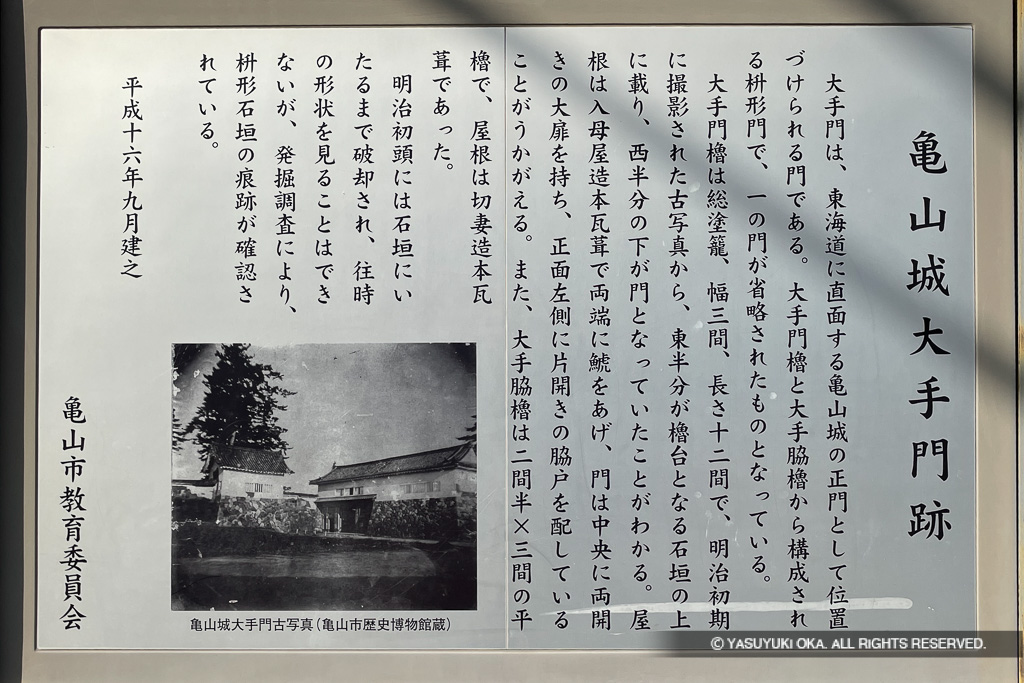 亀山城大手門跡
大手門は、東海道に直面する亀山城の正門として位置
づけられる門である。大手門櫓と大手脇櫓から構成され
る枡形門で、一の門が省略されたものとなっている。
大手門櫓は総塗籠、幅三間、長さ十二間で、明治初期
に撮影された古写真から、東半分が櫓台となる石垣の上
に載り、西半分の下が門となっていたことがわかる。屋
根は入母屋造本瓦葺で両端に鯱をあげ、門は中央に両開
きの大扉を持ち、正面左側に片開きの脇戸を配している
ことがうかがえる。また、大手脇櫓は二間半×三間の平
櫓で、屋根は切妻造本瓦
葺であった。
明治初頭には石垣にい
たるまで破却され、往時
の形状を見ることはでき
ないが、発掘調査により、
枡形石垣の痕跡が確認さ
れている。
平成十六年九月建之
亀山市教育委員会
亀山城大手門古写真（亀山市歴史博物館蔵）
© YASUYUKI OKA. ALL RIGHTS RESERVED.